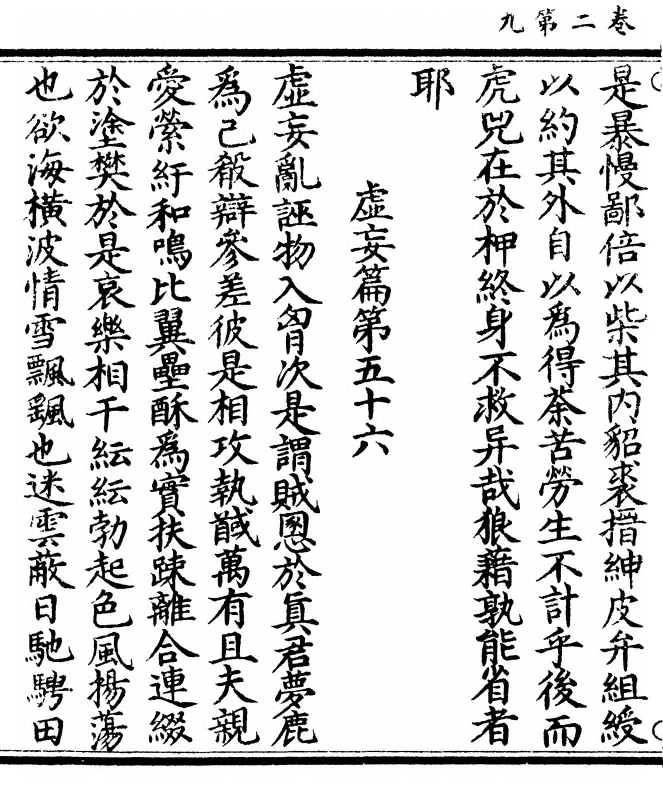 卷二第九
是暴慢鄙倍以柴其内貂裘搢紳皮弁組綬
以約其外自以爲得荼苦勞生不計乎後而
虎兕在於柙終身不救异哉狼藉孰能省者
耶
虛妄篇第五十六
虛妄亂誣物入胷次是謂賊恩於眞君夢鹿
爲己殽辯參差彼是相攻執馘萬有且夫親
愛縈紆和鳴比翼壘酥爲實扶踈離合連綴
於塗樊於是哀樂相干紜紜勃起色風揚蕩
也欲海橫波情雪飄颻也迷雲蔽日馳騁田